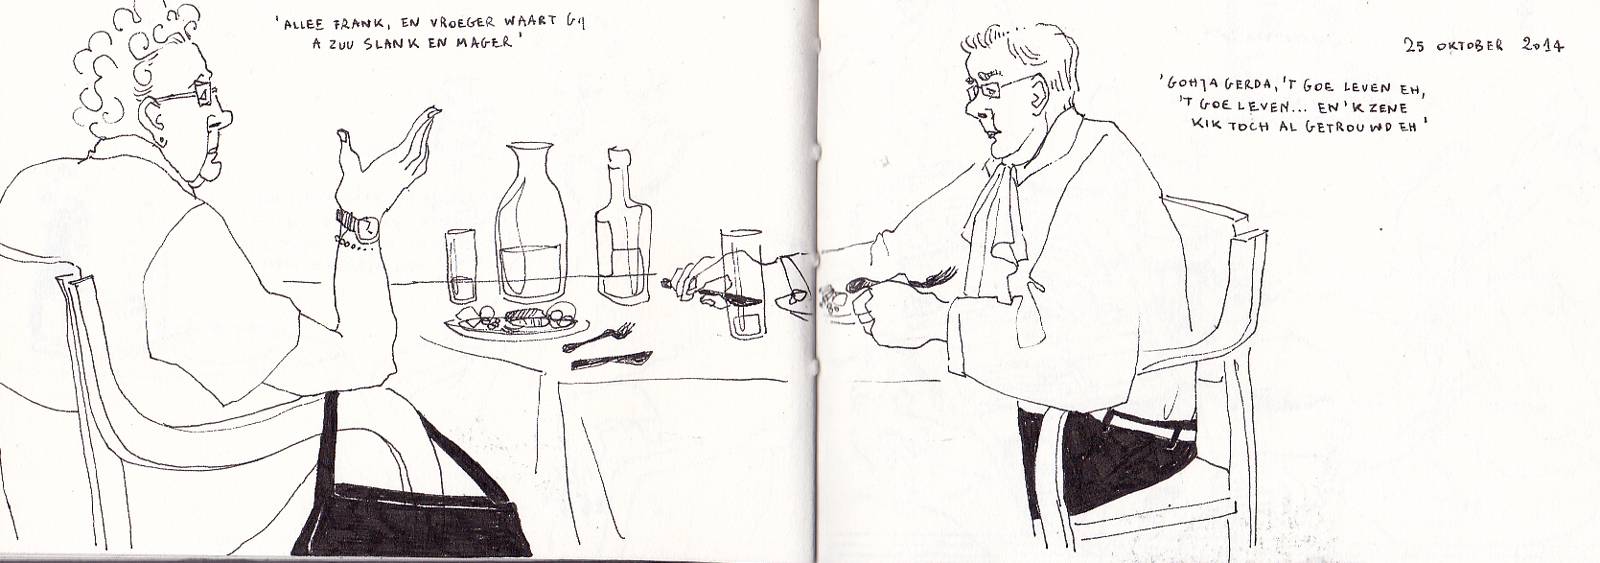 'ALLEE FRANK, EN VROEGER WAART GIJ
A ZUU SLANK EN MAGER'
25 OKTOBER 2014
'GOH JA GERDA, 'T GOE LEVEN EH,
'T GOE LEVEN... EN 'K ZENE
KIK TOCH AL GETROUWD EH'